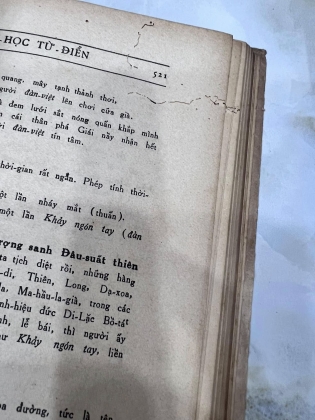 HỌC TỪ-ĐIỂN
521
quang, mây tạnh thành thơi,
người đàn-việt lên chơi cửa già.
đem lưới sắt nóng quấn khắp mình
cái thân phá Giái nầy nhận hết
đàn-việt tín tâm.
thời-gian rất ngắn. Phép tính thời-
một lần nháy mắt (thuấn).
một lần Khảy ngón tay (đàn
sanh Đâu-suất thiên
ta tịch diệt rồi, những hàng
Thiên, Long, Dạ-xoa,
Ma-hầu-la-già, trong các
danh-hiệu đức Di-Lặc Bồ-tát
lễ bái, thì người ấy
Khảy ngón tay, liền
đường, tức là tên